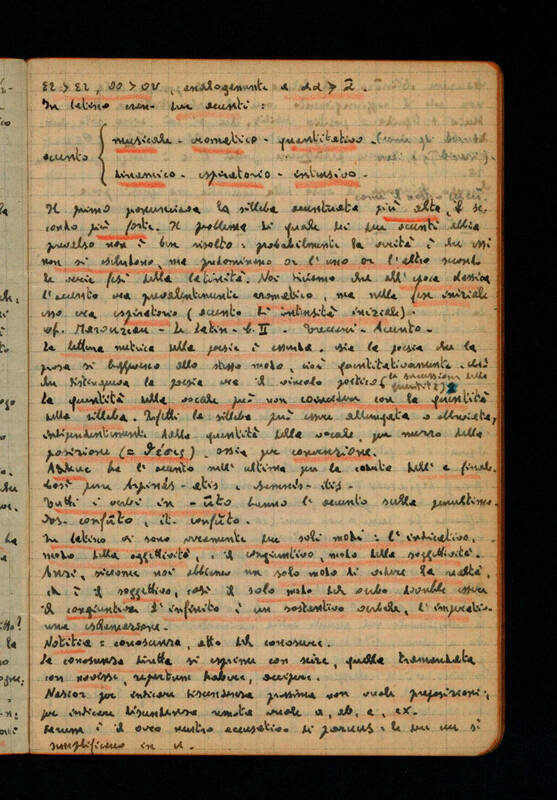 εε > ει, οο > ου, analogamente a
In latino eran due accenti:
accento
musicale - cromatico - quantitativo
dinamico - espiratorio - intensivo.
Il primo pronunciava la sillaba accentuata più alta, il se-
condo più forte. Il problema di quale dei due accenti abbia
prevalso non è ben risolto: probabilmente la verità è che essi
non si escludono, ma predominano or l'uno or l'altro secondo
le varie fasi della latinità. Noi diciamo che all'epoca classica
l'accento era prevalentemente cromatico, ma nella fase iniziale
esso era espiratorio (accento di intensità iniziale).
cfr. Marouzeau - Le Latin - C. II - Treccani - Accento -
La lettura metrica della poesia è assurda. Sia la poesia che la
prosa si leggevano allo stesso modo, cioè quantitativamente. Ciò
che distingueva la poesia era il vincolo poetico (la successione delle quantità)
La quantità della vocale può non coincidere con la quantità
della sillaba. Infatti la sillaba può essere allungata o abbreviata,
indipendentemente dalla quantità della vocale, per mezzo della
posizione (= θέσις), ossia per convenzione.
ha l'accento sull'ultima per la caduta dell'e finale.
Così pure Arpinás - atis,
Tutti i verbi in - hanno l'accento sulla penultima.
In latino ci sono praticamente due soli modi: l'indicativo,
modo della oggettività, e il congiuntivo, modo della soggettività.
Anzi, siccome noi abbiamo un solo modo di vedere la realtà,
che è il soggettivo, così il solo modo del verbo dovrebbe essere
il congiuntivo. L'infinito è un sostantivo verbale, l'imperativo
una esclamazione.
Notitia = conoscenza, atto del conoscere.
La conoscenza diretta si esprime con scire, quella tramandata
con novisse, repertum habere, accipere.
Nascor per indicare discendenza prossima non vuole preposizioni,
per indicare discendenza remota vuole a, ab, e, ex.
è il vero nostro accusativo di
semplificano in u.